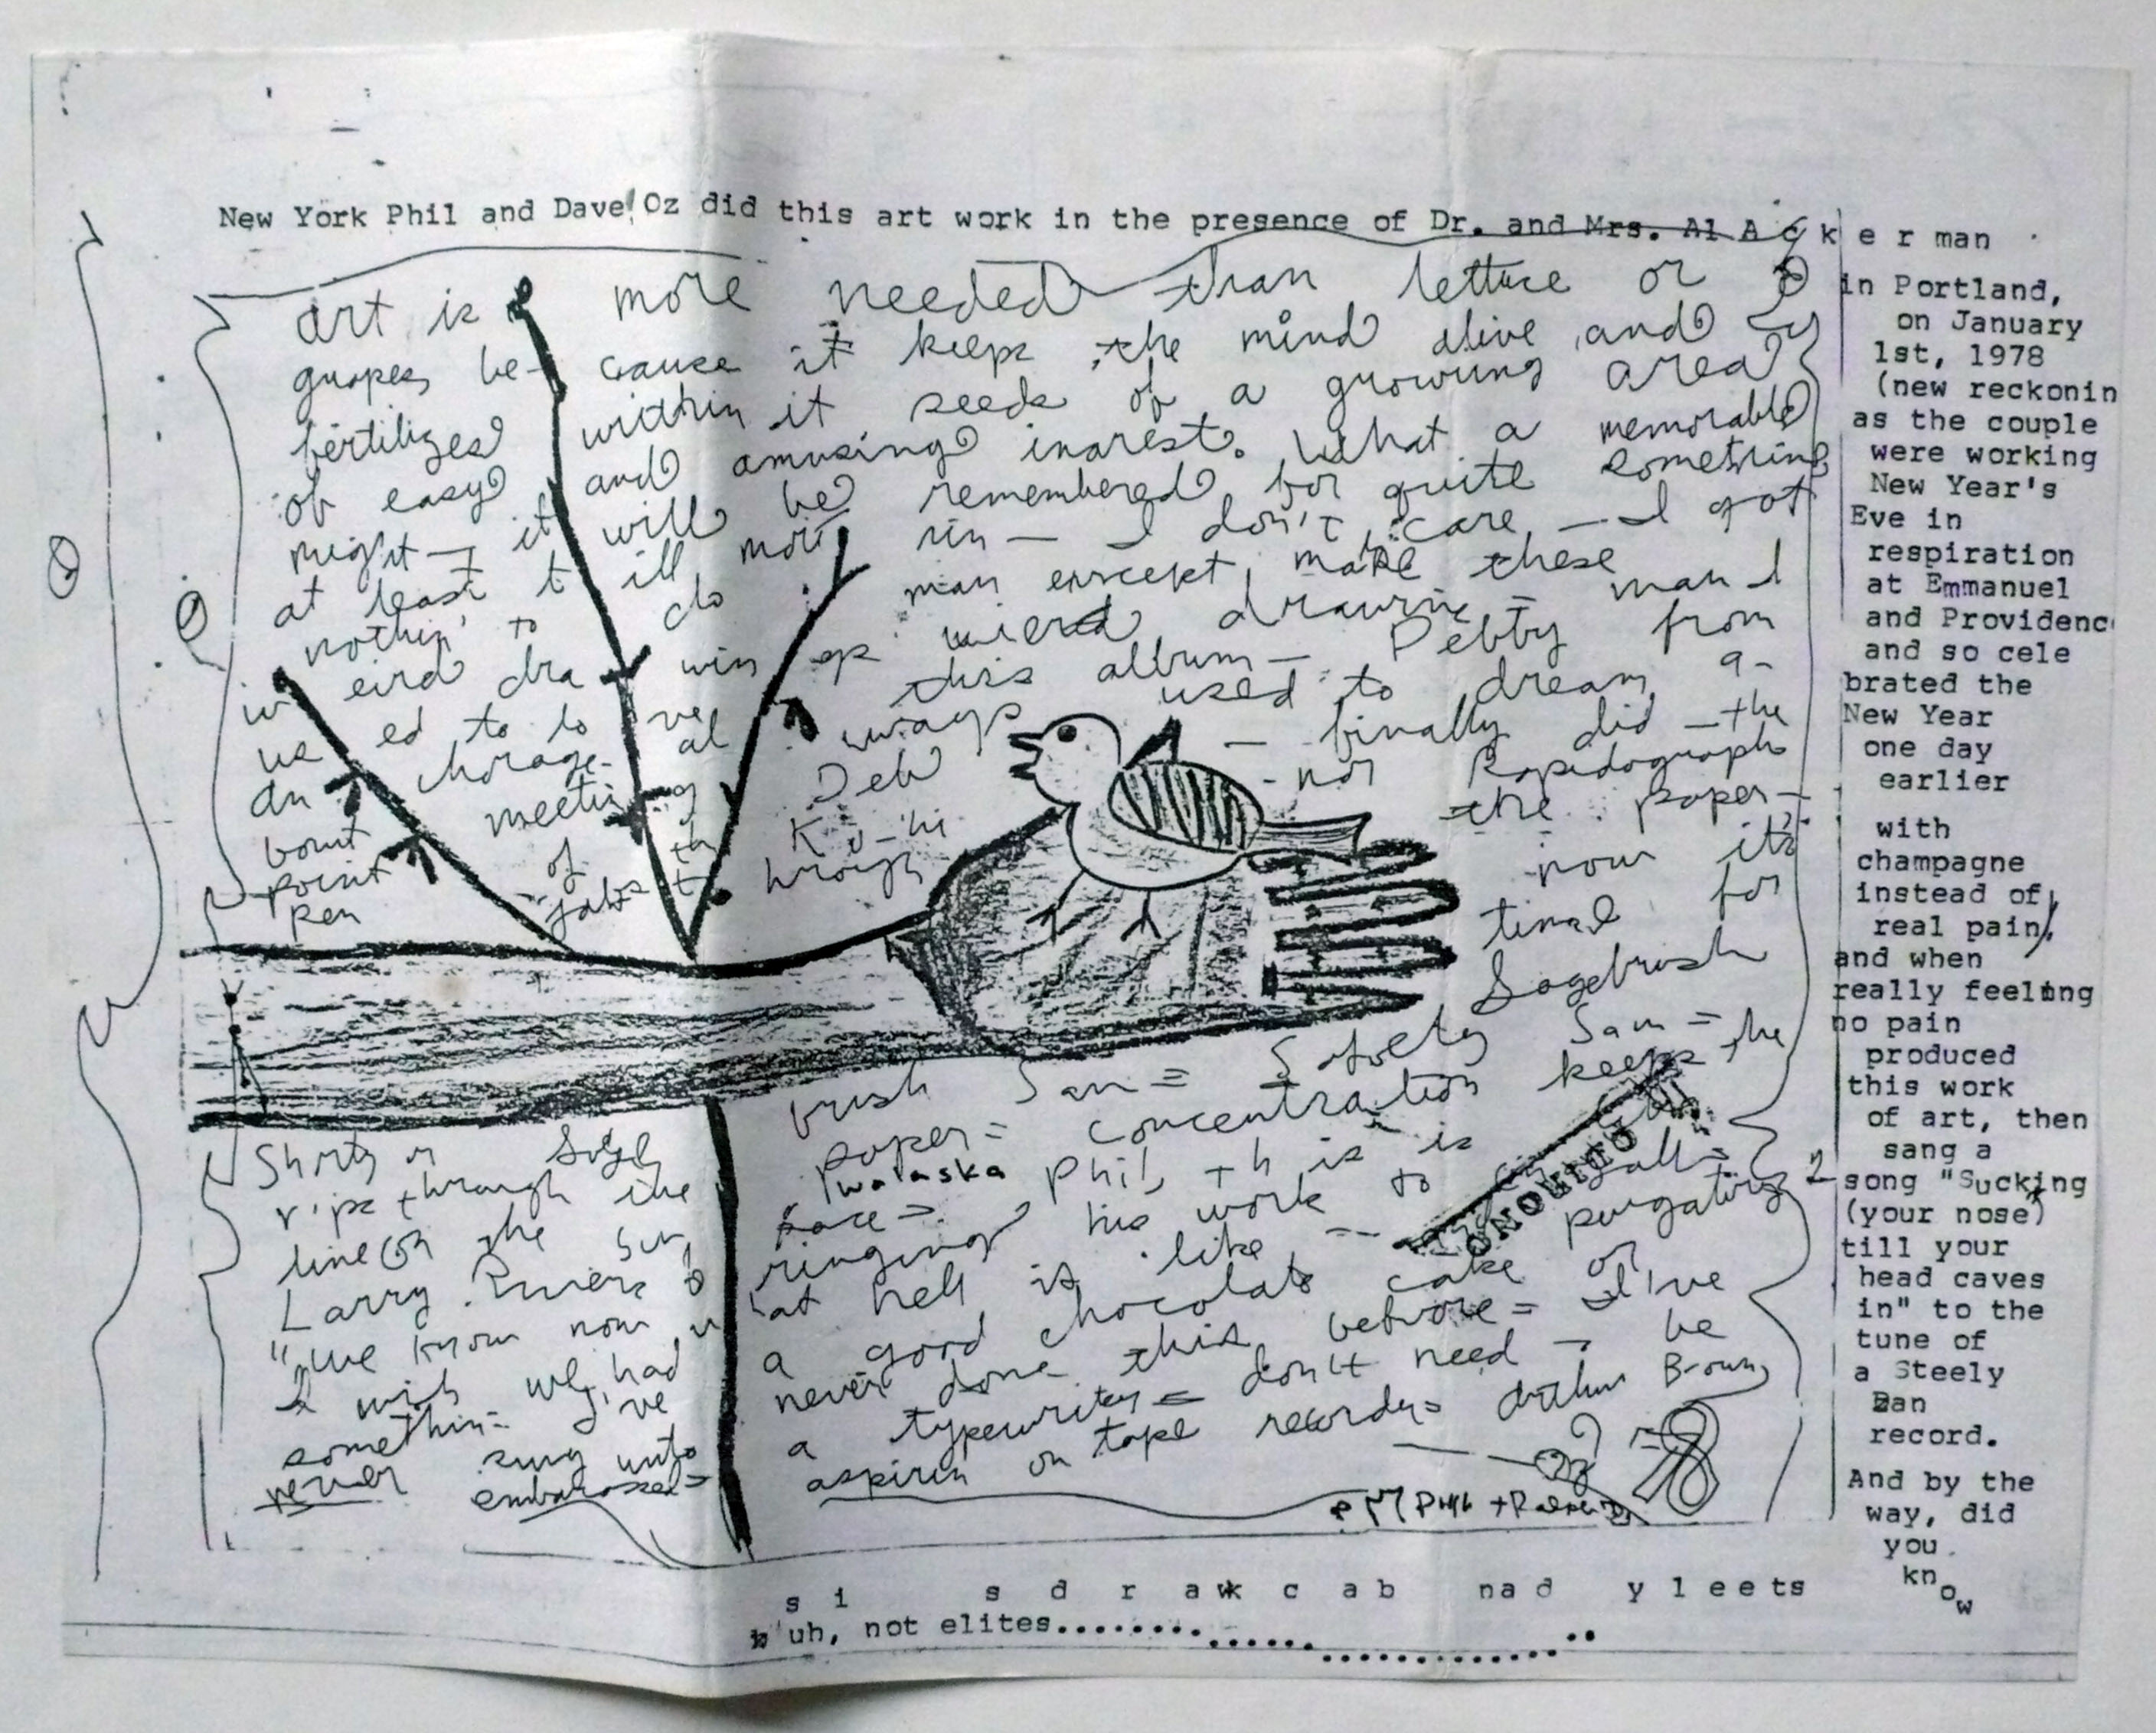 New York Phil and Dave Oz did this art work in the presence of Dr. and Mrs. Al Ackerman
in Portland,
on January
1st, 1978
(new reckonin
as the couple
were working
New Year's
Eve in
respiration
at Emmanuel
and Providenc
and so cele
brated the
New Year
one day
earlier
with
champagne
instead of
real pain,
and when
really feeling
no pain
produced
this work
of art, then
sang a
song "Sucking
(your nose)
till your
head caves
in" to the
tune of
a Steely
Dan
record.
And by the
way, did
you
know
si sdrawkcab nad yleets
uh, not elites
art is more needed than lettuce or
grapes be- cause it keeps the mind alive and
fertilizes within it seeds of a growing area
of easy and amusing inarest. What a memorable
night — it will be remembered for quite something
at least t ill morr in — I don't care — I got
nothin' to do man except make these
w eird dra win gs wierd drawin = man I
us ed to lo ve this album — Debby from
An chorage- al ways used to dream a-
bout meetin g Deb — finally did — the
point of th K -hi - nor Rapidograph
pen jabs t hrough the paper —
now its
time for
Sagebrush
Shorty or Sage brush Sam = Safely Sam = the
rips through the paper = concentration keeps
line on the Sun walaska Phil, this is
Larry Rivers face = ringing his work to
"we know now w hat hell is like purgatory
I wish we had a good chocolate cake or
somethin = I've never done this before = I've
never sung unto a typewriter = don't need — be
embarassed = aspirin on tape recordy = Arthur Brown
ONOMINO
78